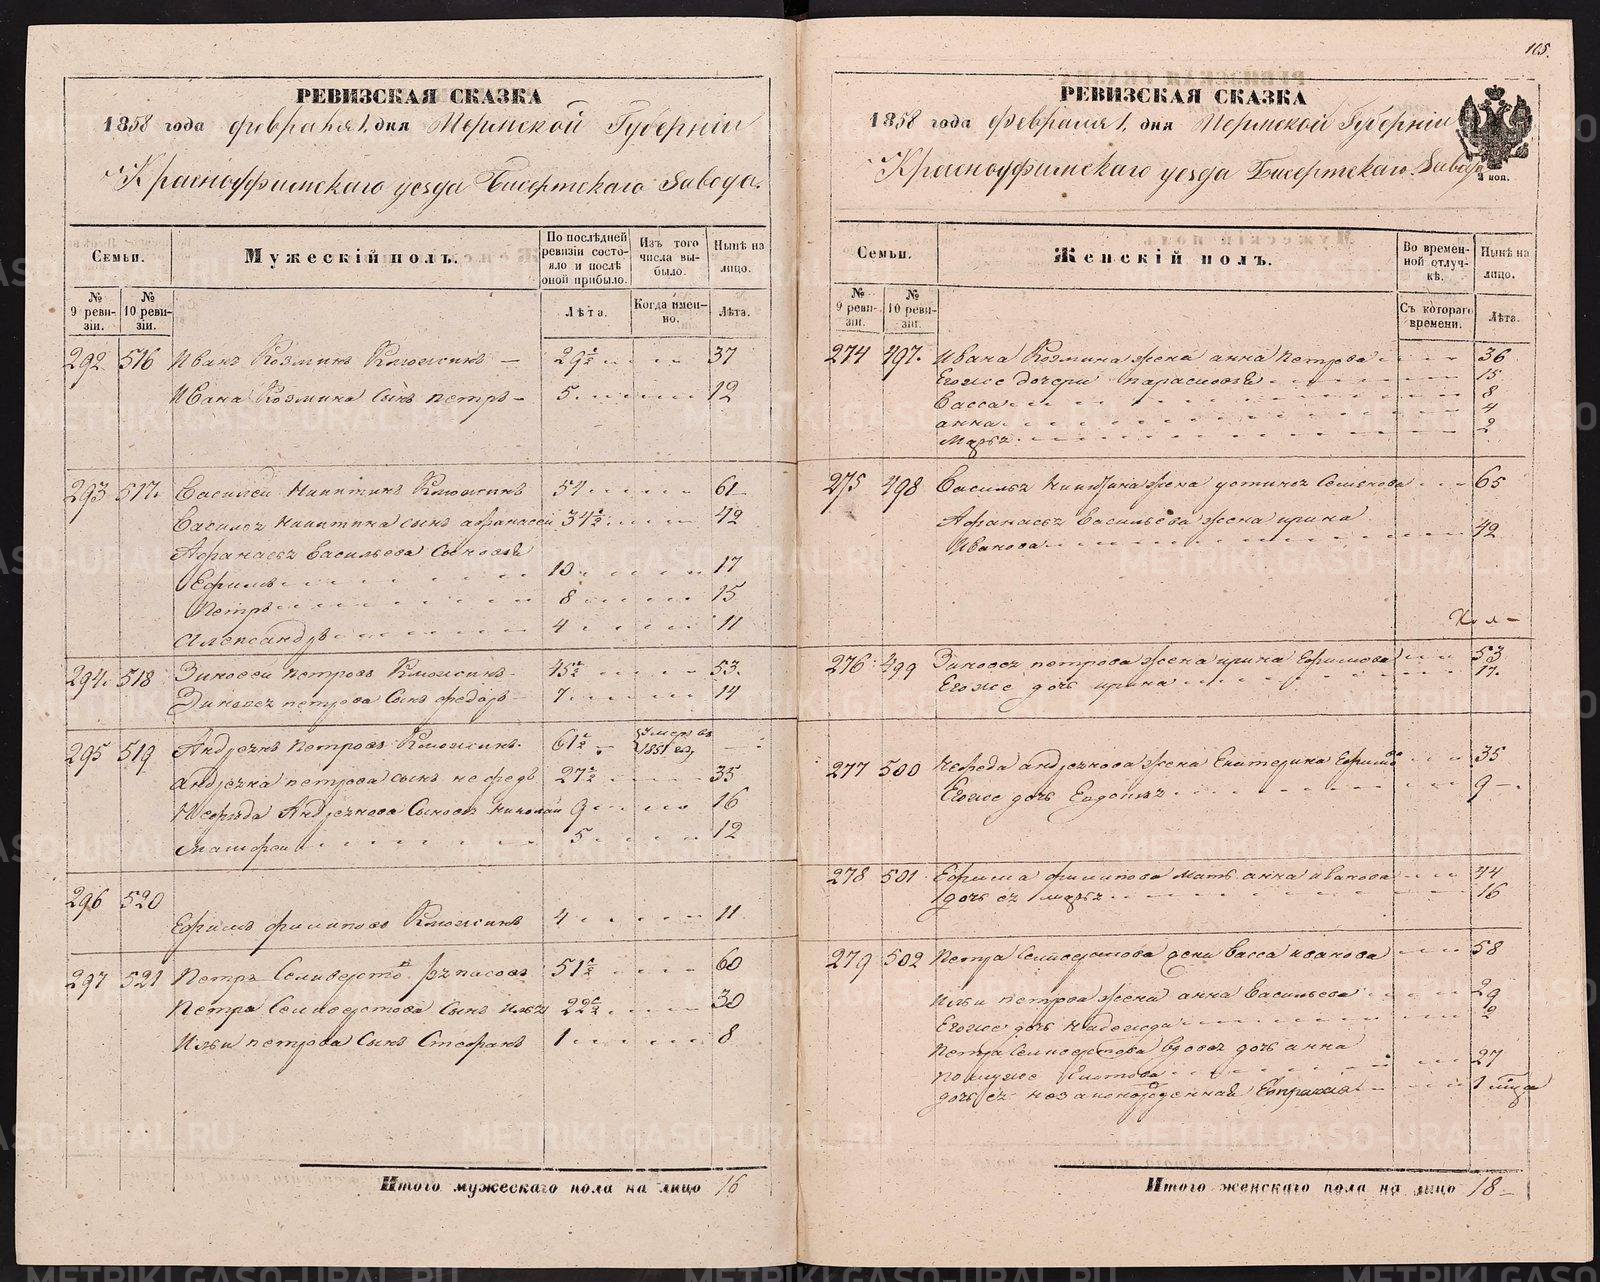 105.
РЕВИЗСКАЯ СКАЗКА
1858 года февраля 1, дня Пермской Губерніи
Красноуфимскаго уезда Бисертскаго Завода.
Семьи.
№ 9 ревизіи.
№ 10 ревизіи.
Мужескій полъ.
По послѣдней ревизіи состояло и послѣ оной прибыло.
Изъ того числа выбыло.
Нынѣ на лицо.
Лѣта.
Когда именно.
Лѣта.
292 516 Иванъ Козминъ Клюжинъ 29½ 37
Ивана Козмина сынъ Петръ 5 12
293 517. Василей Никитинъ Клюжинъ 54 61
Василья Никитина сынъ Афанасей 34½ 42
Афанасья Васильева сыновья
Ефимъ 10 17
Петръ 8 15
Александръ 4 11
294. 518 Зиновей Петровъ Клюжинъ 45½ 53.
Зиновья Петрова сынъ Федоръ 7 14
295 519 Андреянъ Петровъ Клюжинъ. 61½ умеръ въ 1851 году
Андреяна Петрова сынъ Нефедъ 27½ 35
Нефеда Андреянова сыновья Николай 9 16
Тимофей 5 12
296 520
Ефимъ Филиповъ Клюжинъ 4 11
297 521 Петръ Селиверстовъ 51½ 60
Петра Селиверстова сынъ Илья 22½ 30
Ильи Петрова сынъ Стефанъ 1 8
Итого мужескаго пола на лицо 16
РЕВИЗСКАЯ СКАЗКА
1858 года февраля 1, дня Пермской Губерніи
Красноуфимскаго уезда Бисертскаго Завода
2 коп.
Семьи.
№ 9 ревизіи.
№ 10 ревизіи.
Женскій полъ.
Во временной отлучкѣ.
Нынѣ на лицо.
Съ котораго времени.
Лѣта.
274 497. Ивана Козмина жена Анна Петрова 36
Егоже дочери Парасковья 15
Васса 8
Анна 4
Марья 2
275 498 Василья Никитина жена Устинья Семенова 65
Афанасья Васильева жена Ирина
Иванова 42
276 499 Зиновья Петрова жена Ирина Ефимова 53
Егоже дочь Ирина 17.
277 500 Нефеда Андреянова жена Екатерина Ефимова 35
Егоже дочь Евдокья 9
278 501 Ефима Филипова мать Анна Иванова 44
дочь ея Марья 16
279 502 Петра Селиверстова жена Васса Иванова 58
Ильи Петрова жена Анна Васильева 29
Егоже дочь Надежда 2
Петра Селиверстова вдова дочь Анна
по мужѣ 27
дочь ея незаконорожденная Евпраксия 1 мца
Итого женскаго пола на лицо 18
METRIKI.GASO-URAL.RU